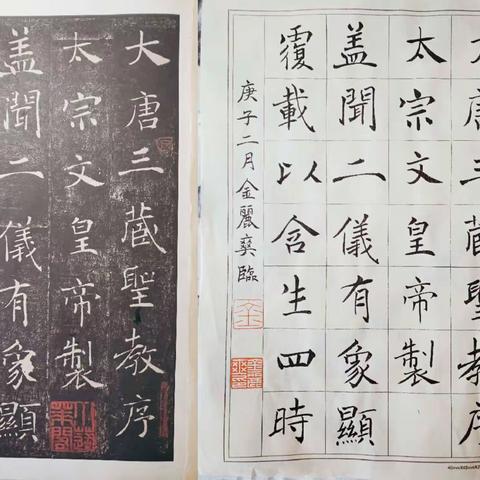 大唐三藏聖教序
太宗文皇帝製
盖聞二儀有象顯
大唐三藏聖教序
太宗文皇帝製
盖聞二儀有象顯
覆載以含生四時
庚子二月金麗爽臨